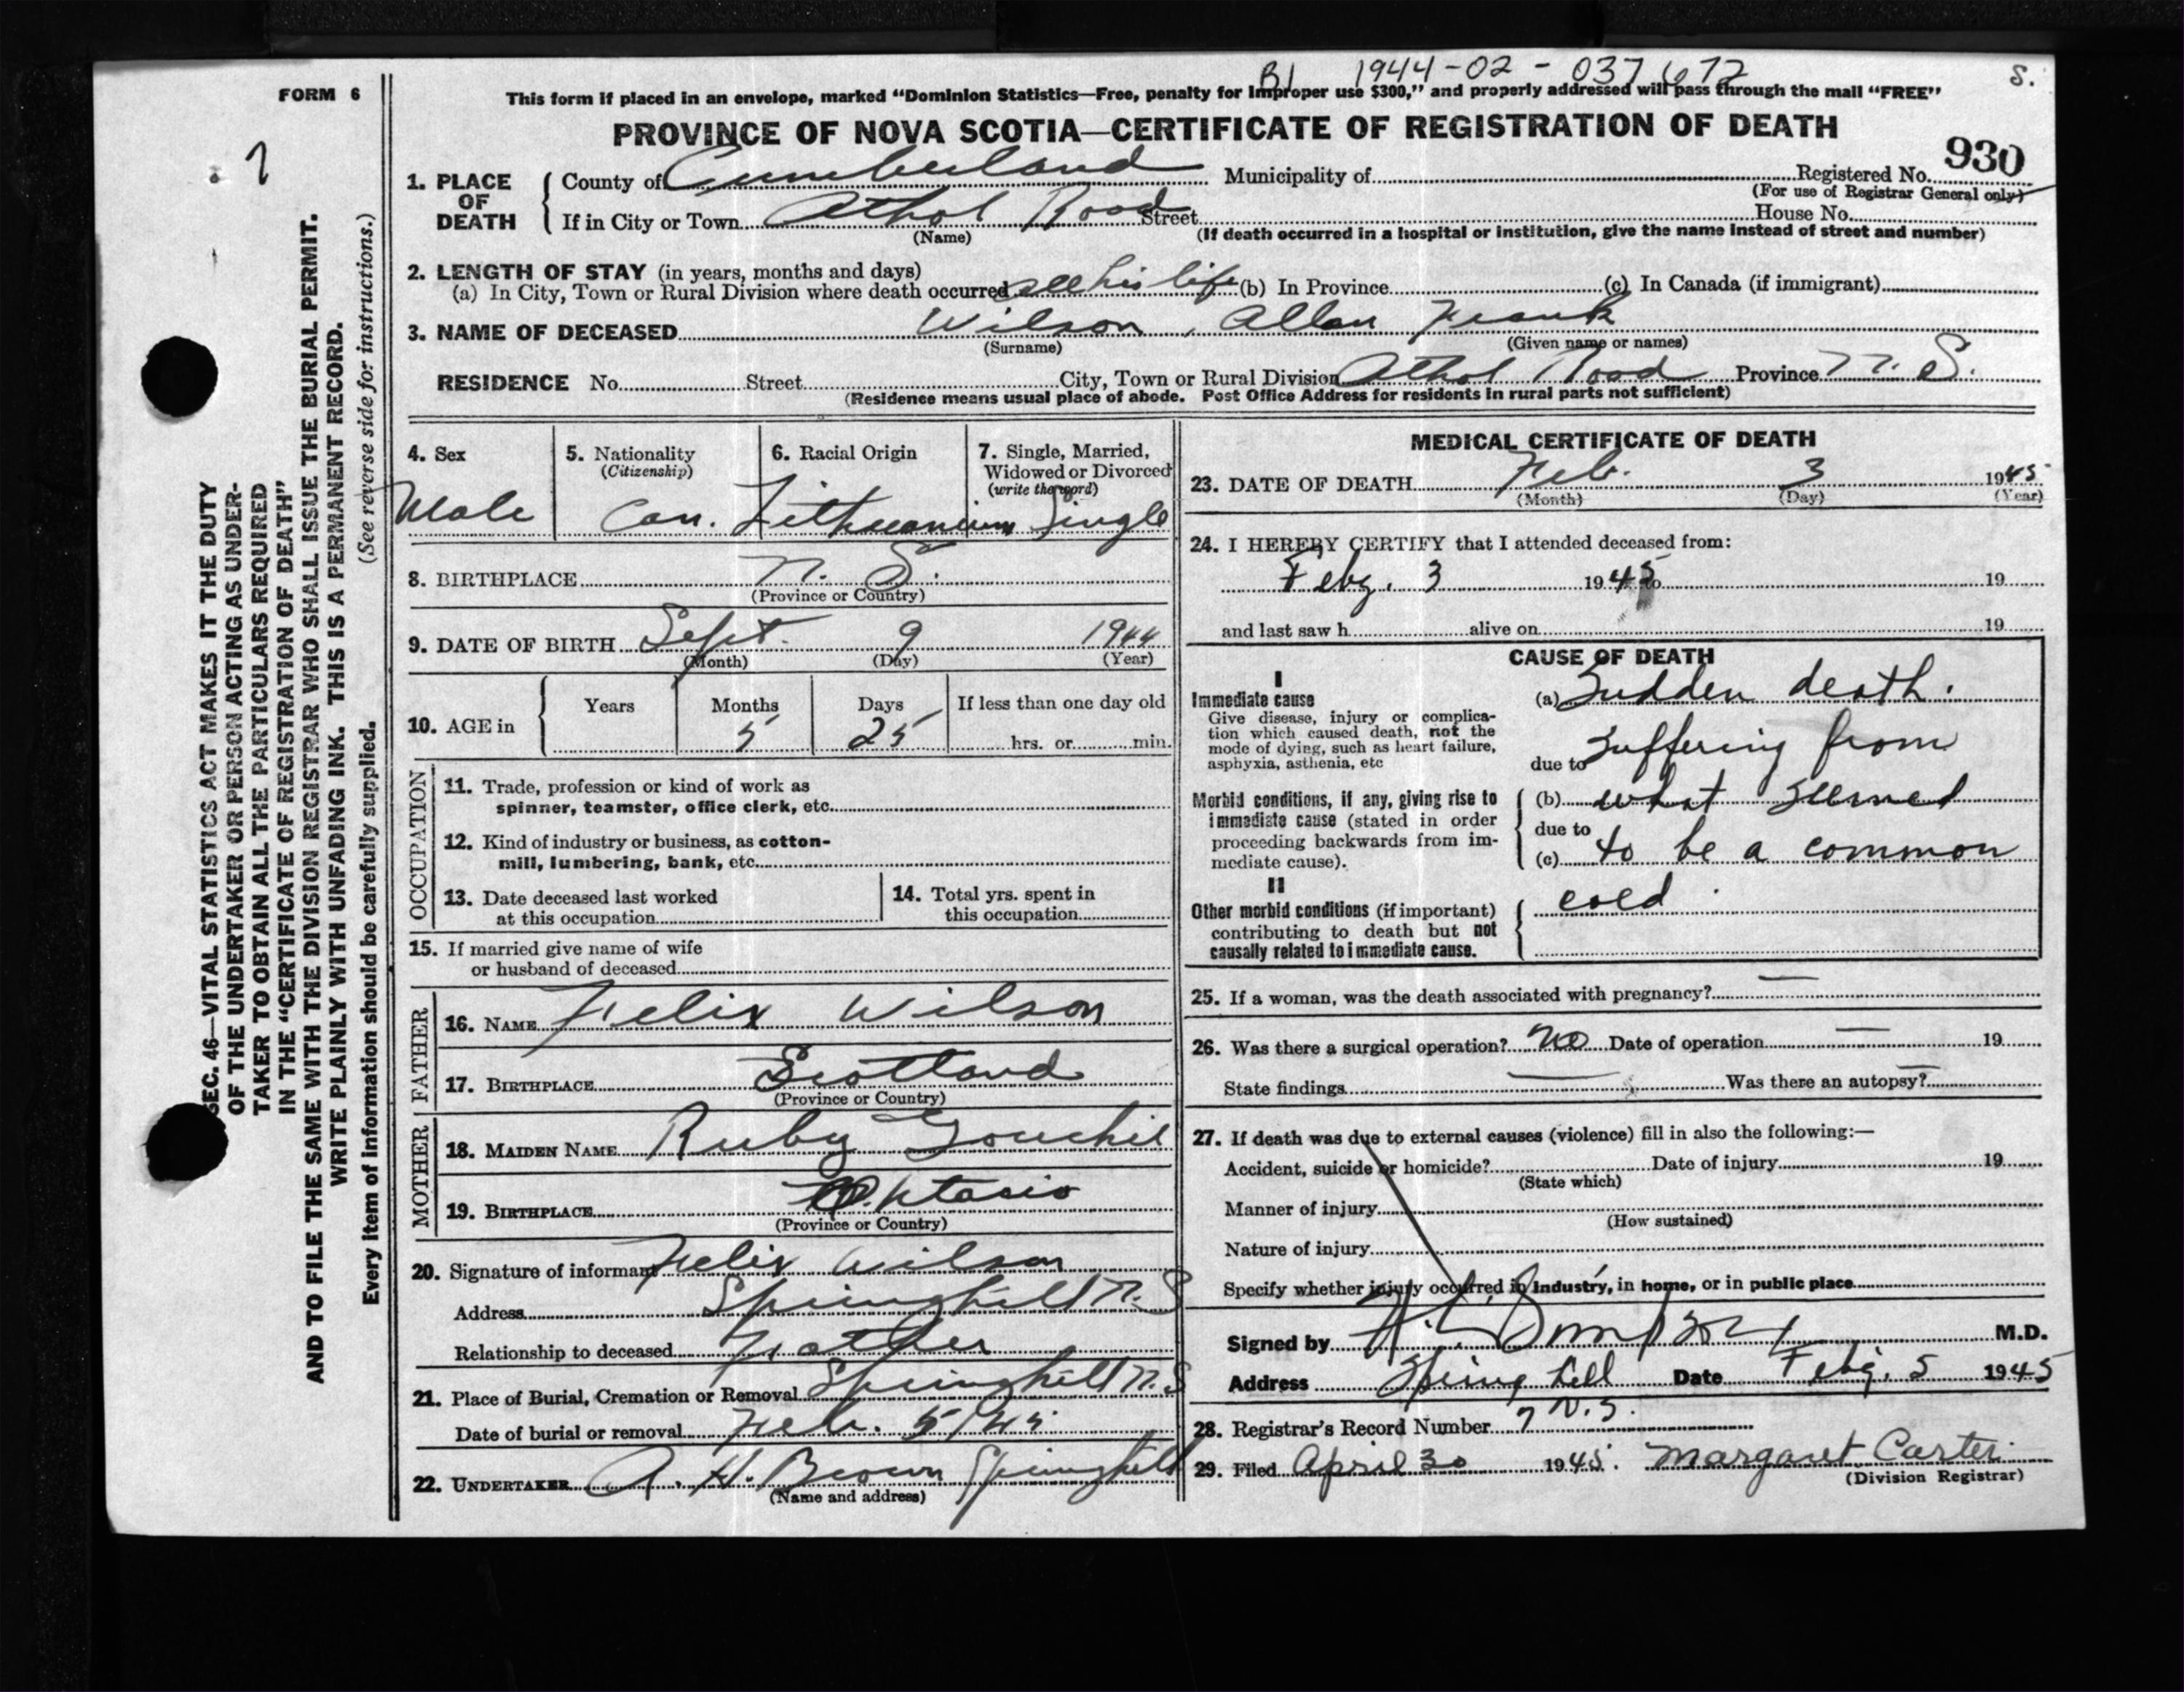 B1 1944-02-037672 S.
FORM 6
This form if placed in an envelope, marked "Dominion Statistics—Free, penalty for improper use $300," and properly addressed will pass through the mail "FREE"
PROVINCE OF NOVA SCOTIA—CERTIFICATE OF REGISTRATION OF DEATH
7
930
1. PLACE OF DEATH
County of Cumberland Municipality of Registered No.
(For use of Registrar General only)
If in City or Town Athol Road Street House No.
(Name) (If death occurred in a hospital or institution, give the name instead of street and number)
2. LENGTH OF STAY (in years, months and days)
(a) In City, Town or Rural Division where death occurred all his life (b) In Province (c) In Canada (if immigrant)
3. NAME OF DECEASED Wilson, Allan Frank
(Surname) (Given name or names)
RESIDENCE No. Street City, Town or Rural Division Athol Road Province N. S.
(Residence means usual place of abode. Post Office Address for residents in rural parts not sufficient)
4. Sex
Male
5. Nationality
(Citizenship)
Can.
6. Racial Origin
Lithuanian
7. Single, Married,
Widowed or Divorced
(write the word)
Single
8. BIRTHPLACE N. S.
(Province or Country)
9. DATE OF BIRTH Sept. 9 1944
(Month) (Day) (Year)
10. AGE in
Years Months Days If less than one day old
5 25 hrs. or min.
OCCUPATION
11. Trade, profession or kind of work as
spinner, teamster, office clerk, etc.
12. Kind of industry or business, as cotton-
mill, lumbering, bank, etc.
13. Date deceased last worked
at this occupation
14. Total yrs. spent in
this occupation
15. If married give name of wife
or husband of deceased
FATHER
16. NAME Felix Wilson
17. BIRTHPLACE Scotland
(Province or Country)
MOTHER
18. MAIDEN NAME Ruby
19. BIRTHPLACE Ontario
(Province or Country)
20. Signature of informant Felix Wilson
Address Springhill N. S
Relationship to deceased Father
21. Place of Burial, Cremation or Removal Springhill N. S
Date of burial or removal Feb. 5/45
22. UNDERTAKER A. H. Brown Springhill
(Name and address)
MEDICAL CERTIFICATE OF DEATH
23. DATE OF DEATH Feb. 3 1945
(Month) (Day) (Year)
24. I HEREBY CERTIFY that I attended deceased from:
Feby. 3 1945 to 19
and last saw h alive on 19
CAUSE OF DEATH
I
Immediate cause
Give disease, injury or complica-
tion which caused death, not the
mode of dying, such as heart failure,
asphyxia, asthenia, etc
(a) Sudden death.
due to Suffering from
Morbid conditions, if any, giving rise to
immediate cause (stated in order
proceeding backwards from im-
mediate cause).
(b) what seemed
due to
(c) to be a common
II
Other morbid conditions (if important)
contributing to death but not
causally related to immediate cause.
cold.
25. If a woman, was the death associated with pregnancy? —
26. Was there a surgical operation? No Date of operation — 19
State findings — Was there an autopsy? —
27. If death was due to external causes (violence) fill in also the following:—
Accident, suicide or homicide? Date of injury 19
(State which)
Manner of injury
(How sustained)
Nature of injury
Specify whether injury occurred in industry, in home, or in public place
Signed by M.D.
Address Spring hill Date Feby. 5 1945
28. Registrar's Record Number 7 N.S.
29. Filed April 30 1945. Margaret Carter
(Division Registrar)
SEC. 46—VITAL STATISTICS ACT MAKES IT THE DUTY
OF THE UNDERTAKER OR PERSON ACTING AS UNDER-
TAKER TO OBTAIN ALL THE PARTICULARS REQUIRED
IN THE "CERTIFICATE OF REGISTRATION OF DEATH"
AND TO FILE THE SAME WITH THE DIVISION REGISTRAR WHO SHALL ISSUE THE BURIAL PERMIT.
WRITE PLAINLY WITH UNFADING INK. THIS IS A PERMANENT RECORD.
(See reverse side for instructions.)
Every item of information should be carefully supplied.